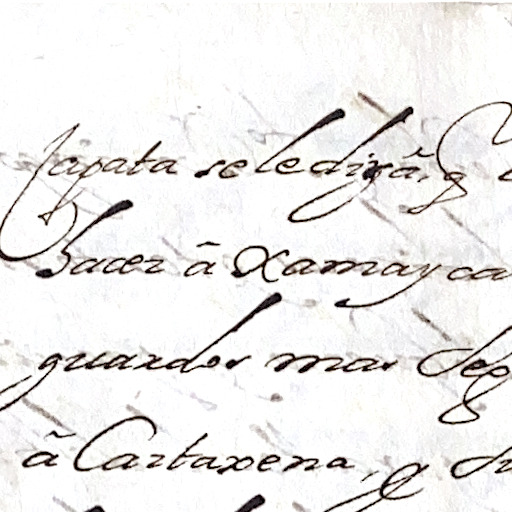 Zapata se le dixã, q
hacer â Xamayca
guardos mas Seg
â Cartaxena, q su